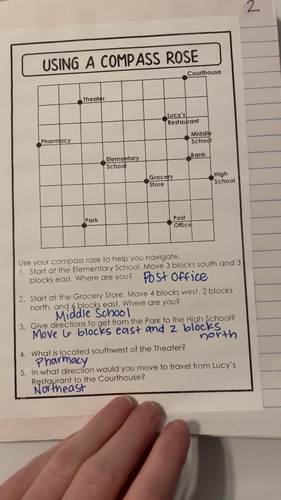 2
USING A COMPASS ROSE
Courthouse
Theater
Lucy's
Restaurant
Middle
School
Pharmacy
Bank
Elementary
School
High
School
Grocery
Store
Park
Post
Office
Use your compass rose to help you navigate.
1. Start at the Elementary School. Move 3 blocks south and 3
blocks east. Where are you? Post Office
2. Start at the Grocery Store. Move 4 blocks west, 2 blocks
north, and 6 blocks east. Where are you?
Middle School
3. Give directions to get from the Park to the High School?
Move 6 blocks east and 2 blocks
north
4. What is located southwest of the Theater?
Pharmacy
5. In what direction would you move to travel from Lucy's
Restaurant to the Courthouse?
Northeast